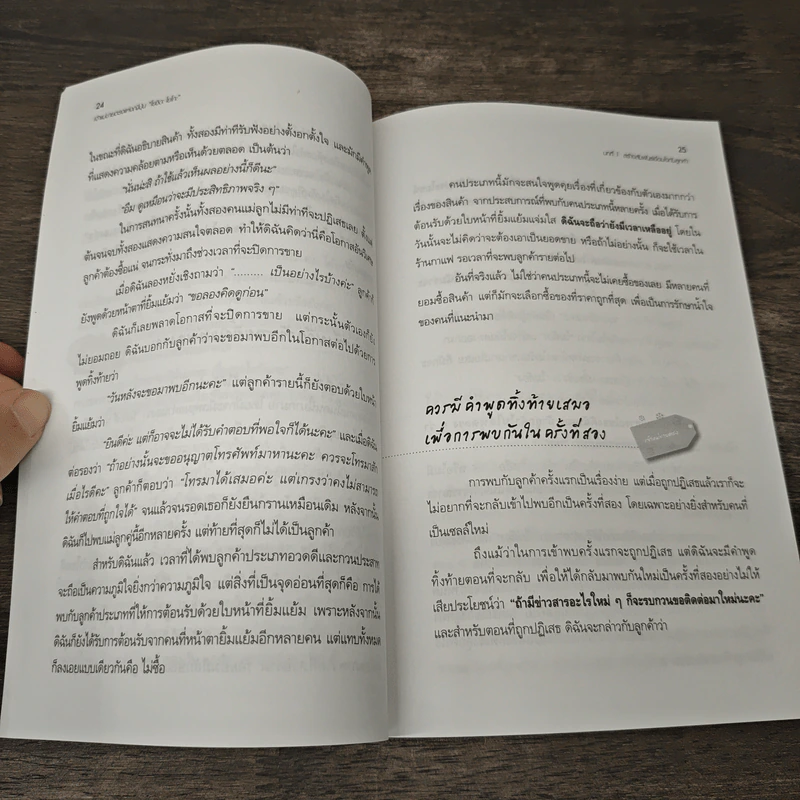 24
ในขณะที่ดิฉันอธิบายสินค้า ทั้งสองมีท่าทีรับฟังอย่างตั้งอกตั้งใจ และมักมีคำพูด
ที่แสดงความคล้อยตามหรือเห็นด้วยตลอด เป็นต้นว่า
"นั่นน่ะสิ ถ้าใช้แล้วเห็นผลอย่างนี้ก็ดีนะ"
"อืม ดูเหมือนว่าจะมีประสิทธิภาพจริง ๆ"
ในการสนทนาครั้งนั้นทั้งสองคนแม่ลูกไม่มีท่าที่จะปฏิเสธเลย ตั้งแต่
ต้นจนจบทั้งสองแสดงความสนใจตลอด ทำให้ดิฉันคิดว่านี่คือโอกาสอันวิเศษ
ลูกค้าต้องซื้อแน่ จนกระทั่งมาถึงช่วงเวลาที่จะปิดการขาย
เมื่อดิฉันลองหยั่งเชิงถามว่า "........ เป็นอย่างไรบ้างค่ะ" ลูกค้า
ยังพูดด้วยหน้าตาที่ยิ้มแย้มว่า "ขอลองคิดดูก่อน"
ดิฉันก็เลยพลาดโอกาสที่จะปิดการขาย แต่กระนั้นตัวเองก็ยัง
ไม่ยอมถอย ดิฉันบอกกับลูกค้าว่าจะขอมาพบอีกในโอกาสต่อไปด้วยการ
พูดทิ้งท้ายว่า
"วันหลังจะขอมาพบอีกนะคะ" แต่ลูกค้ารายนี้ก็ยังตอบด้วยใบหน้า
ยิ้มแย้มว่า
"ยินดีค่ะ แต่ก็อาจจะไม่ได้รับคำตอบที่พอใจก็ได้นะคะ" และเมื่อดิฉัน
ต่อรองว่า "ถ้าอย่างนั้นจะขออนุญาตโทรศัพท์มาหานะคะ ควรจะโทรมาสัก
เมื่อไรดีคะ" ลูกค้าก็ตอบว่า "โทรมาได้เสมอค่ะ แต่เกรงว่าคงไม่สามารถ
ให้คำตอบที่ถูกใจได้" จนแล้วจนรอดเธอก็ยังยืนกรานเหมือนเดิม หลังจากนั้น
ดิฉันก็ไปพบแม่ลูกคู่นี้อีกหลายครั้ง แต่ท้ายที่สุดก็ไม่ได้เป็นลูกค้า
สำหรับดิฉันแล้ว เวลาที่ได้พบลูกค้าประเภทอวดดีและกวนประสาท
จะถือเป็นความภูมิใจยิ่งกว่าความภูมิใจ แต่สิ่งที่เป็นจุดอ่อนที่สุดก็คือ การได้
พบกับลูกค้าประเภทที่ให้การต้อนรับด้วยใบหน้าที่ยิ้มแย้ม เพราะหลังจากนั้น
ดิฉันก็ยังได้รับการต้อนรับจากคนที่หน้าตายิ้มแย้มอีกหลายคน แต่แทบทั้งหมด
ก็ลงเอยแบบเดียวกันคือ ไม่ซื้อ
25
บทที่ 1
คนประเภทนี้มักจะสนใจพูดคุยเรื่องที่เกี่ยวข้องกับตัวเองมากกว่า
เรื่องของสินค้า จากประสบการณ์ที่พบกับคนประเภทนี้หลายครั้ง เมื่อได้รับการ
ต้อนรับด้วยใบหน้าที่ยิ้มแย้มแจ่มใส ดิฉันจะถือว่ายังมีเวลาเหลืออยู่ โดยใน
วันนั้นจะไม่คิดว่าจะต้องเอาเป็นยอดขาย หรือถ้าไม่อย่างนั้น ก็จะใช้เวลาใน
ร้านกาแฟ รอเวลาที่จะพบลูกค้ารายต่อไป
อันที่จริงแล้ว ไม่ใช่ว่าคนประเภทนี้จะไม่เคยซื้อของเลย มีหลายคนที่
ยอมซื้อสินค้า แต่ก็มักจะเลือกซื้อของที่ราคาถูกที่สุด เพื่อเป็นการรักษาน้ำใจ
ของคนที่แนะนำมา
ควรมี คำพูดทิ้งท้ายเสมอ
เพื่อการพบกันใน ครั้งที่สอง
การพบกับลูกค้าครั้งแรกเป็นเรื่องง่าย แต่เมื่อถูกปฏิเสธแล้วเราก็จะ
ไม่อยากที่จะกลับเข้าไปพบอีกเป็นครั้งที่สอง โดยเฉพาะอย่างยิ่งสำหรับคนที่
เป็นเซลส์ใหม่
ถึงแม้ว่าในการเข้าพบครั้งแรกจะถูกปฏิเสธ แต่ดิฉันจะมีคำพูด
ทิ้งท้ายตอนที่จะกลับ เพื่อให้ได้กลับมาพบกันใหม่เป็นครั้งที่สองอย่างไม่ให้
เสียประโยชน์ว่า "ถ้ามีข่าวสารอะไรใหม่ ๆ ก็จะรบกวนขอติดต่อมาใหม่นะคะ"
และสำหรับตอนที่ถูกปฏิเสธ ดิฉันจะกล่าวกับลูกค้าว่า